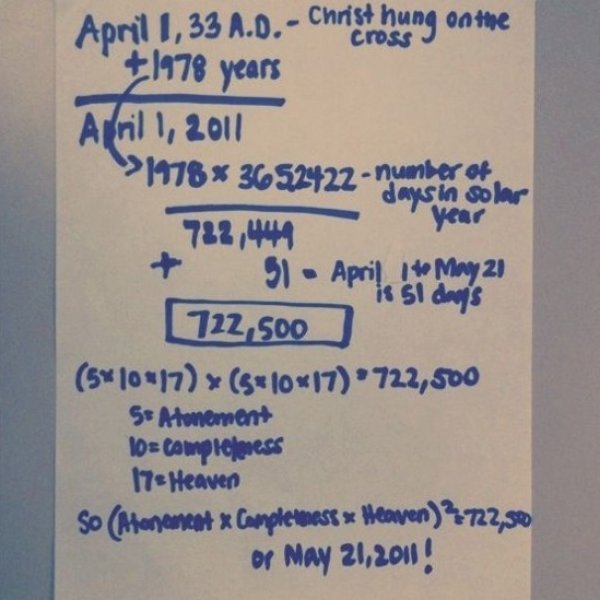 April 1, 33 A.D. - Christ hung on the
cross
+1978 years
April 1, 2011
1978 x 365.2422 - number of
days in solar
year
722,449
+ 51 = April 1 to May 21
is 51 days
722,500
(5x10x17) x (5x10x17) = 722,500
5 = Atonement
10 = Completeness
17 = Heaven
So (Atonement x Completness x Heaven)² = 722,500
or May 21, 2011!